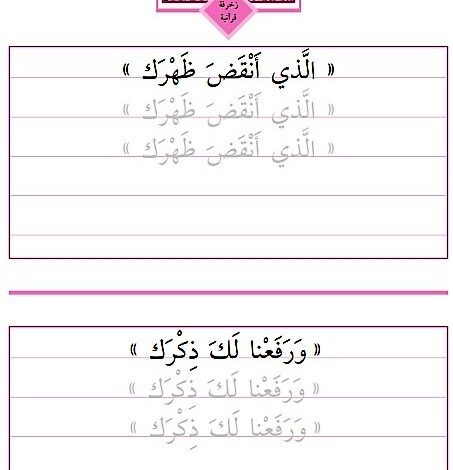 زخرفة
قرآنية
« الَّذي أَنْقَضَ ظَهْرَك »
« الَّذي أَنْقَضَ ظَهْرَك »
« الَّذي أَنْقَضَ ظَهْرَك »
« وَرَفَعْنا لَكَ ذِكْرَك »
« وَرَفَعْنا لَكَ ذِكْرَك »
« وَرَفَعْنا لَكَ ذِكْرَك »